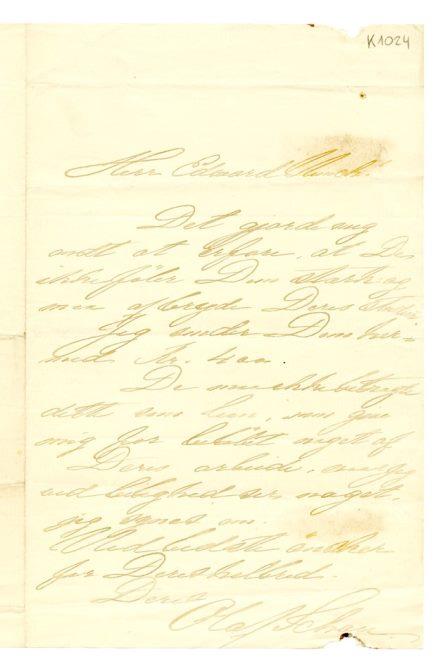 K1024
Herr Edvard Munch!
Det gjorde mig
ondt at erfare, at De
ikke föler Dem stark og
maa afbryde Deres
Jeg sender Dem her=
med Kr. 400
De maa ikke betragte
dette som laan, som
mig for
Deres arbeide,
ved leilighed ser noget,
jeg synes om.
Med bedste önsker
for Deres helbred.
Deres
Olaf Schou